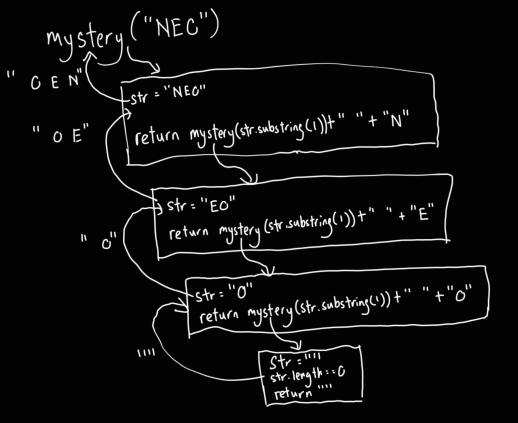 mystery("NEO")
" O E N"
str = "NEO"
return mystery(str.substring(1))+" "+"N"
" O E"
str = "EO"
return mystery(str.substring(1))+" "+"E"
" O"
str = "O"
return mystery(str.substring(1))+" "+"O"
""
str = ""
str.length==0
return ""